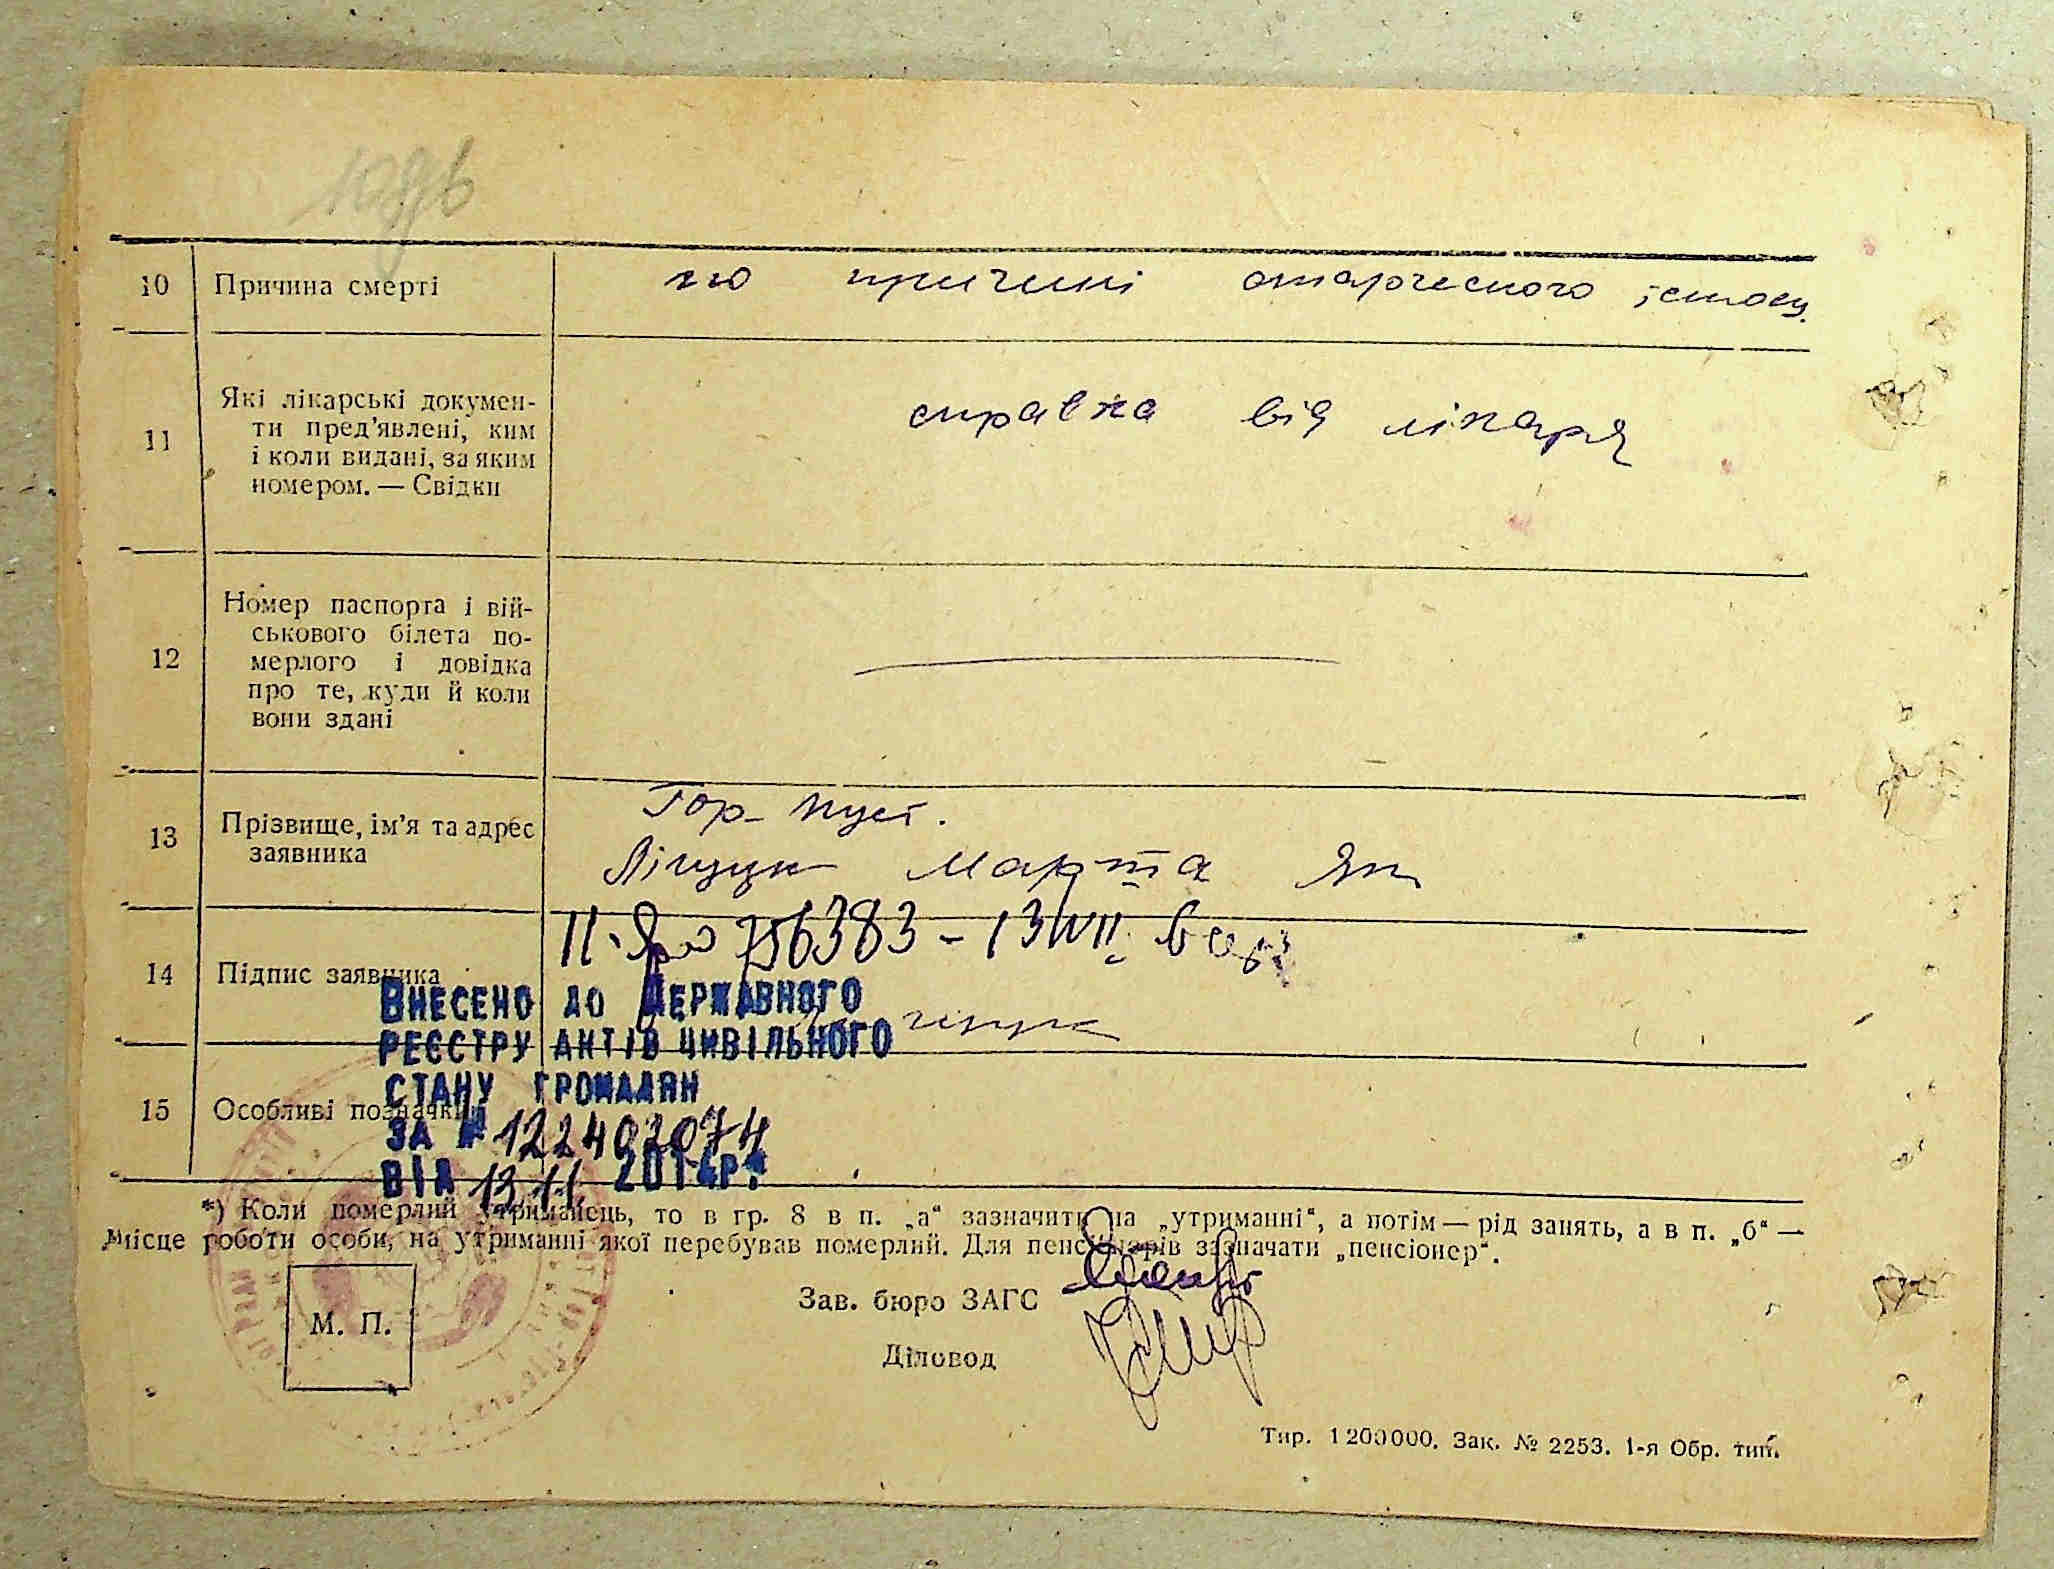 10 Причина смерті
по причині старческого
11 Які лікарські докумен-
ти пред'явлені, ким
і коли видані, за яким
номером. — Свідки
справка від лікаря
12 Номер паспорта і вій-
ськового білета по-
мерлого і довідка
про те, куди й коли
вони здані
13 Прізвище, ім'я та адрес
заявника
Гор. Пуст.
Марта Як
756383 - 13
14 Підпис заявника
ВНЕСЕНО ДО ДЕРЖАВНОГО
РЕЄСТРУ АКТІВ ЦИВІЛЬНОГО
СТАНУ ГРОМАДЯН
15 Особливі позначки
ЗА № 122402074
ВІД 13.11 2014р.
*) Коли померлий утриманець, то в гр. 8 в п. „а“ зазначити на „утриманні“, а потім — рід занять, а в п. „б“ —
місце роботи особи, на утриманні якої перебував померлий. Для пенсіонерів зазначати „пенсіонер“.
Зав. бюро ЗАГС
М. П.
Діловод
Тир. 1 200 000. Зак. № 2253. 1-я Обр. тип.